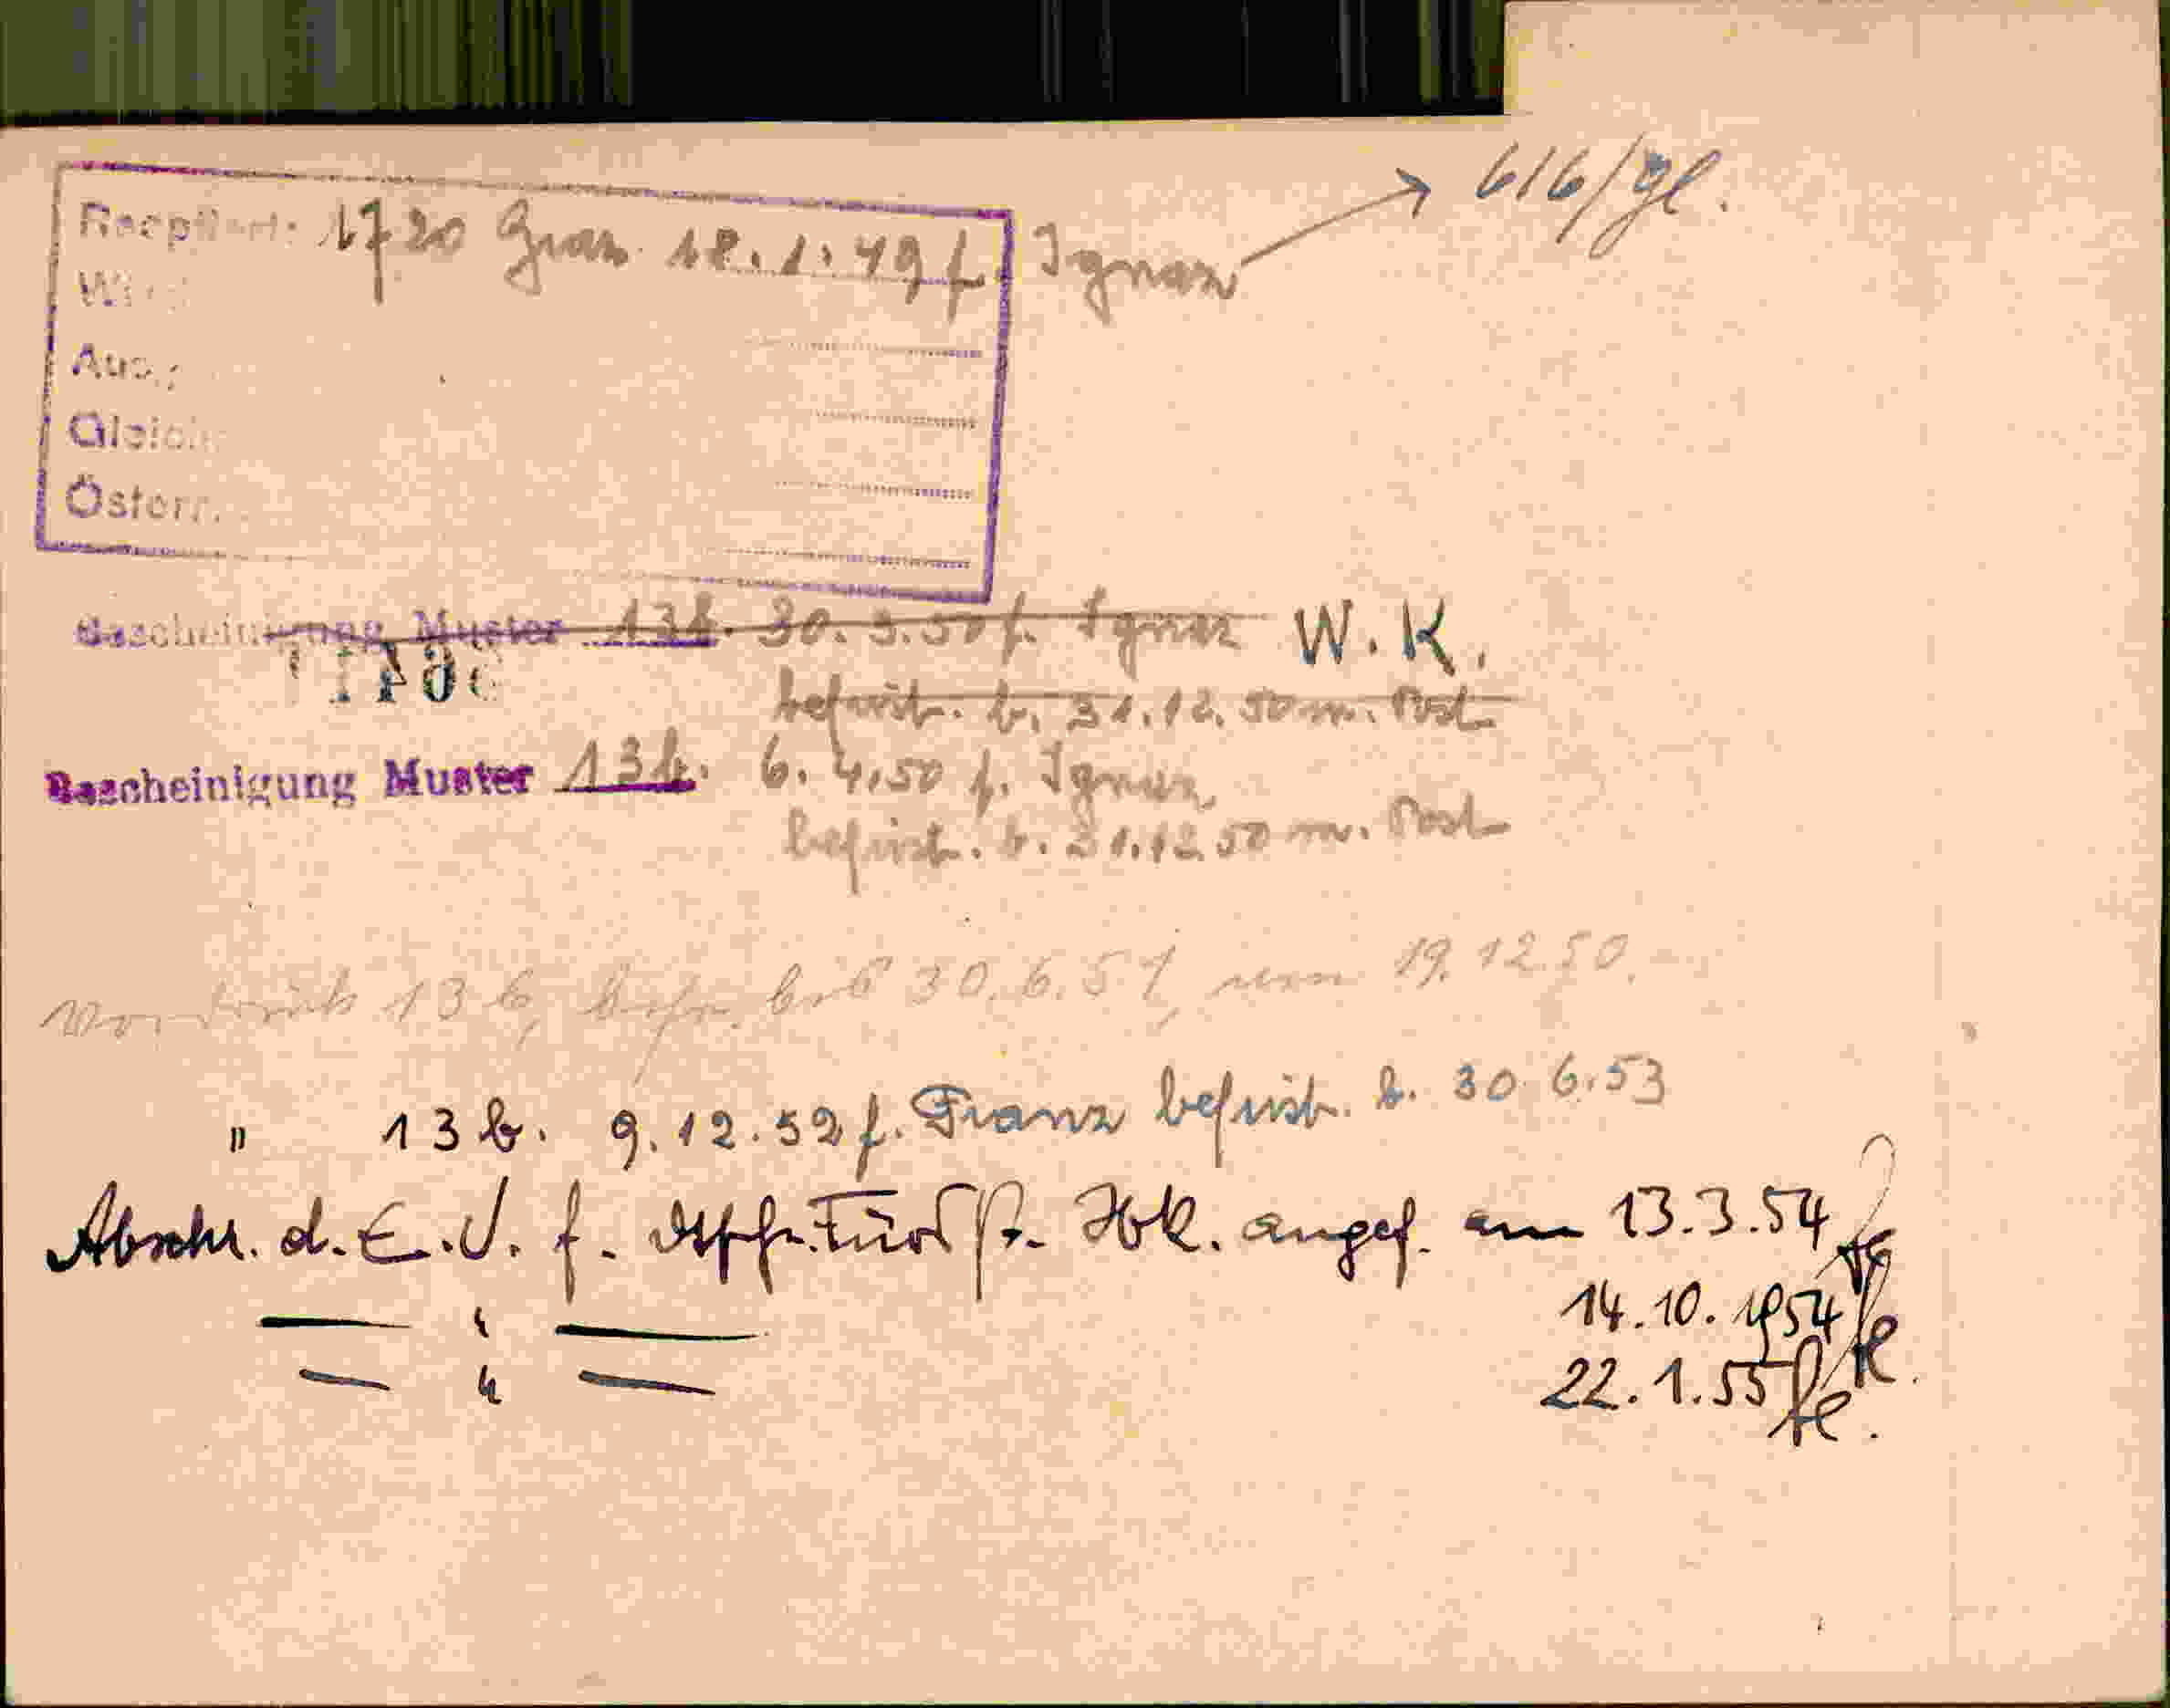 1720 Graz 18.1.49 f. Ignaz → 616/gl.
Österr.
Bascheinigung Muster 13b. 30.3.50 f. Ignaz W. K.
befrist. b. 31.12.50 m. Post
Bascheinigung Muster 13b. 6.4.50 f. Ignaz
befrist. b. 31.12.50 m. Post
Vordruck 13b, befr. bis 30.6.51, vom 19.12.50.
" 13b. 9.12.52 f. Franz befrist. b. 30.6.53
Abschr. d. E.V. f. angef. am 13.3.54
— " — 14.10.1954
— " — 22.1.55